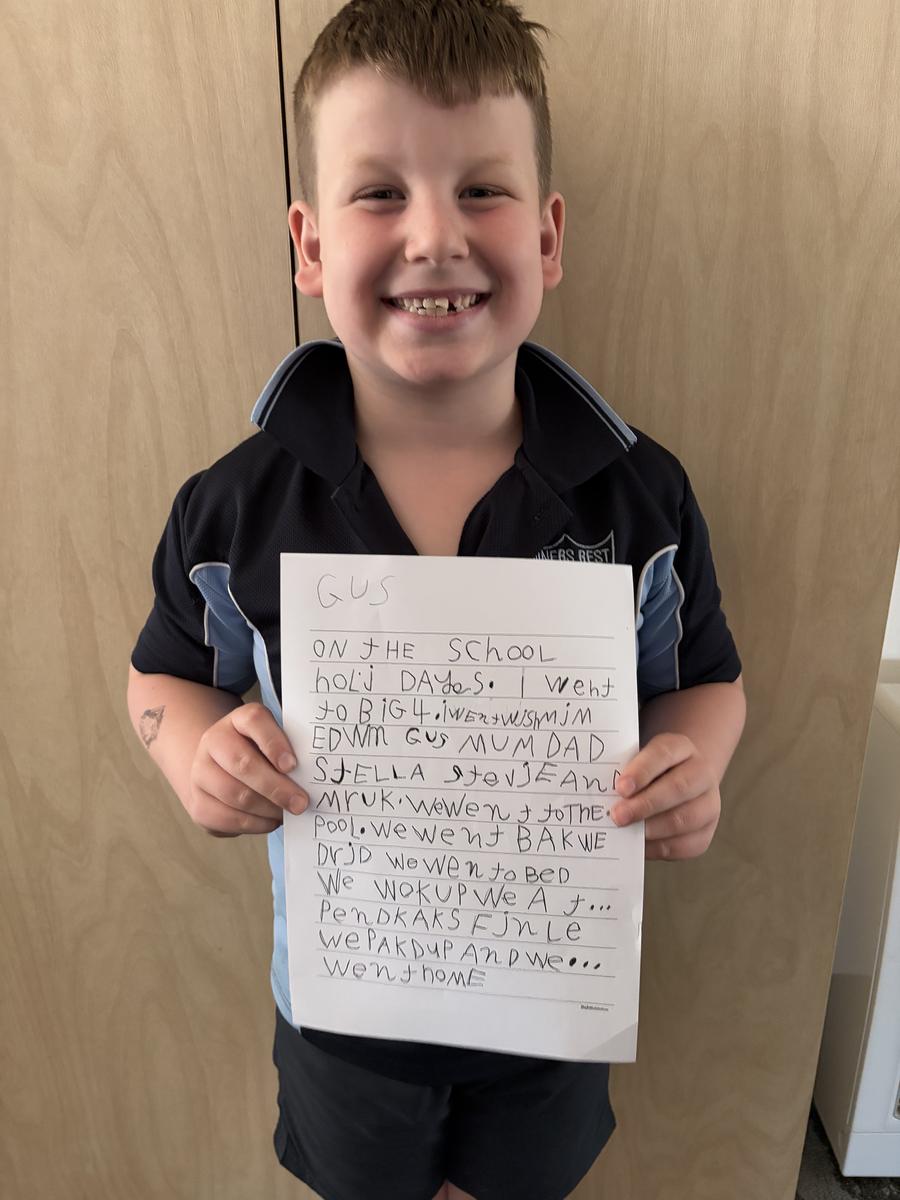 NERS BEST
GUS
ON tHE SChOOL
hOLiJ DAYes. I Went
to BiG 4. iwEntwishMjM
EDWIn GUS MUM DAD
StELLA StevjE AnD
MrUK. WeWent toThE.
POOL. We went BAKWE
DrjD We Wen to BeD
We WOKUP We A t...
PenDKAKS FjnLe
WePAKDUP AnD we...
WenthoME